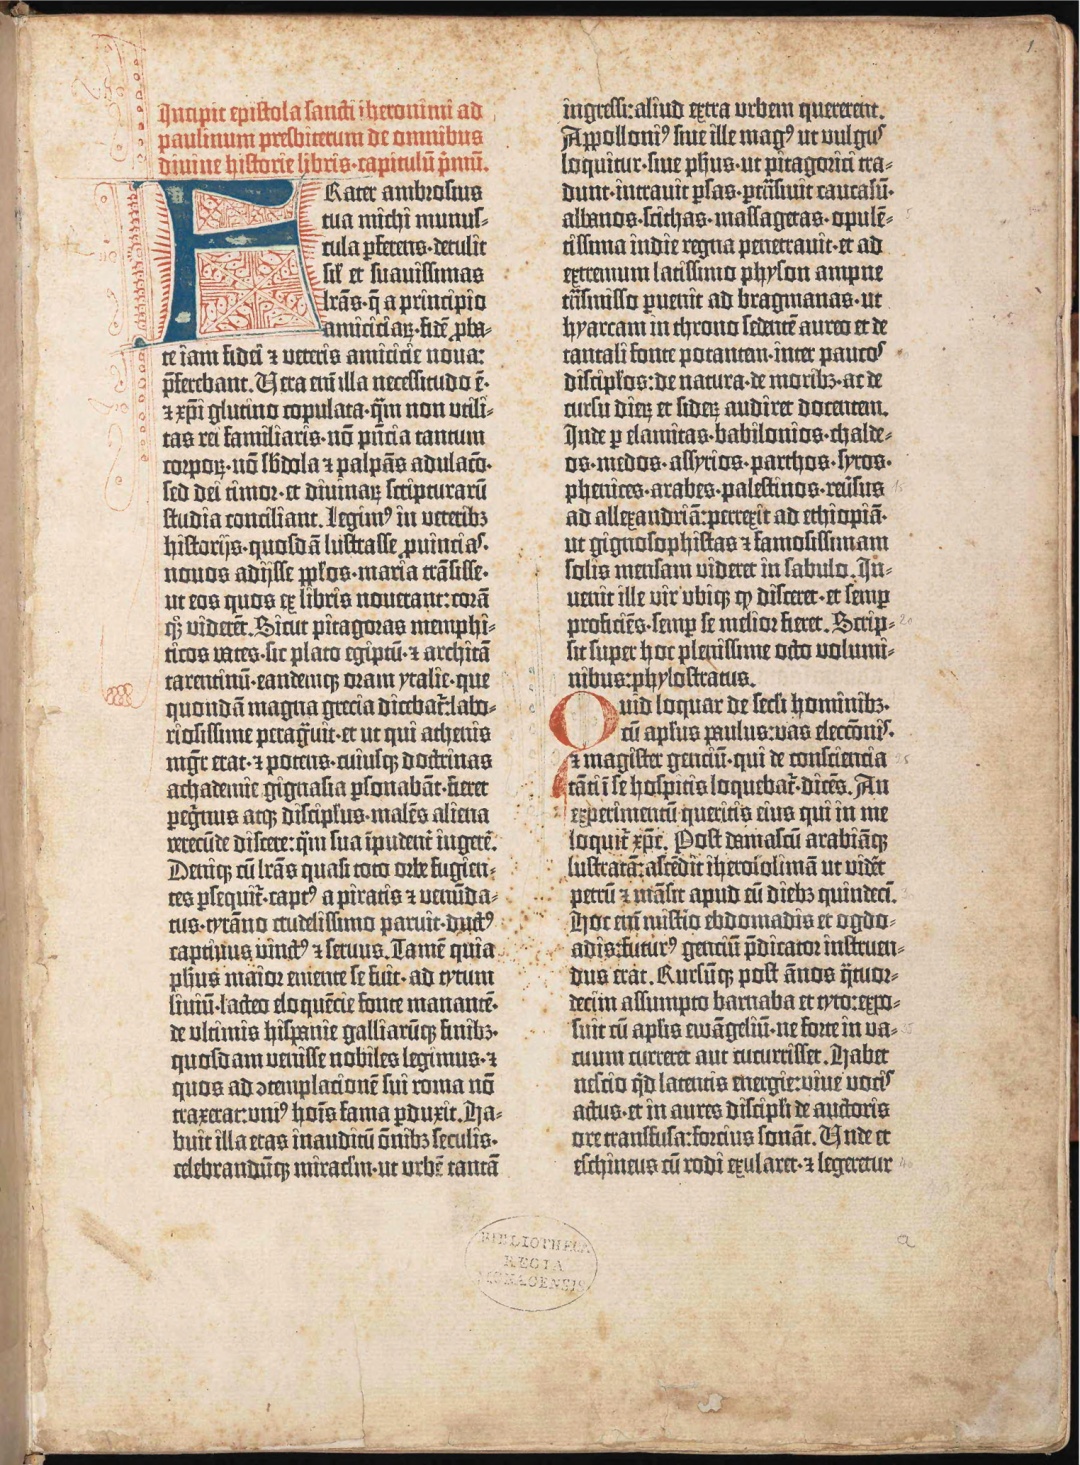 1.
Incipit epistola sancti iheronimi ad
paulinum presbiterum de omnibus
divine historie libris·capitulū p̄mū.
FRater ambrosius
tua michi munus-
cula ꝑferens·detulit
sil̄ et suavissimas
lr̄as·q̄ a principio
amiciciaꝝ·fidē ꝓba-
te iam fidei ⁊ veteris amicicie nova:
p̄ferebant. Vera em̄ illa necessitudo ē·
⁊ xp̄i glutino copulata·q̄m non utili-
tas rei familiaris·nō pn̄cia tantum
corpoꝝ·nō sb̄dola ⁊ palpās adulacō·
sed dei timor·et divinaꝝ scripturarū
studia conciliant. Legimꝰ in veteribꝫ
historijs·quosdā lustrasse ꝓuincias·
novos adijsse pp̄los·maria trāsisse·
ut eos quos ex libris noverant:corā
qꝫ viderēt. Sicut pitagoras memphi-
ticos vates·sic plato egiptū·⁊ architā
tarentinū·eandemqꝫ oram ytalie·que
quondā magna grecia dicebat̄:labo-
riosissime peragͣuit·et ut qui athenis
mgr̄ erat·⁊ potens·cuiusqꝫ doctrinas
achademie gignasia ꝑsonabāt·fieret
peg̓rinus atqꝫ discipl̓us·malēs aliena
verecūde discere:q̄m sua īpudent̓ ingerē·
Deniqꝫ cū lr̄as quasi toto orbe fugien-
tes ꝑsequit̄·captꝰ a piratis ⁊ venūda-
tus·tyrāno crudelissimo paruit·ductꝰ
captivus vinctꝰ ⁊ servus. Tamē quia
ph̄us maior emente se fuit·ad tytum
liviū·lacteo eloquēcie fonte manantē·
de ultimis hispanie galliarūqꝫ finibꝫ·
quosdam venisse nobiles legimus·⁊
quos ad ↄtemplacionē sui roma nō
traxerat:uniꝰ hoīs fama ꝑduxit. Ha-
buit illa etas inauditū ōnibꝫ seculis·
celebrandūqꝫ miraclm̄·ut urbē tantā
ingressi:aliud extra urbem quererent.
Appolloniꝰ sive ille magꝰ ut vulgus
loquitur·sive ph̄us·ut pitagorici tra-
dunt·intravit ꝑsas·ꝑtͣsivit caucasū·
albanos·scithas·massagetas·opulē-
tissima indie regna penetravit·et ad
extremum latissimo physon ampne
tͣsmisso ꝑvenit ad bragmanas·ut
hyarcam in throno sedentē aureo et de
tantali fonte potantem·inter paucos
discipl̓os:de natura·de moribꝫ·ac de
cursu dieꝝ et sideꝝ audiret docentem.
Inde ꝑ elamitas·babilonios·chalde-
os·medos·assyrios·parthos·syros·
phenices·arabes·palestinos·rev̓sus
ad allexandriā:perrexit ad ethiopiā·
ut gignosophistas ⁊ famosissimam
solis mensam videret in sabulo. In-
venit ille vir ubiqꝫ qͩ disceret·et semꝑ
proficiēs·semꝑ se melior fieret. Scrip-
sit super hoc plenissime octo volumi-
nibus:phylostratus.
Quid loquar de secl̓i hominibꝫ·
cū apl̓us paulus:vas eleccōnis·
⁊ magister genciū·qui de consciencia
tāti ī se hospitis loquebat̄·dicēs. An
experimentū queritis eius qui in me
loquit̄ xp̄c. Post damascū arabiāqꝫ
lustratā:ascēdit iherosolimā ut vid̓et
petrū ⁊ māsit apud eū diebꝫ quindecī.
Hoc em̄ mistio ebdomadis et ogdo-
adis:futurꝰ genciū p̄dicator instruen-
dus erat. Rursūqꝫ post ānos q̈tuor-
decim assumpto barnaba et tyto:expo-
suit cū apl̓is ewāgeliū·ne forte in va-
cuum curreret aut cucurrisset. Habet
nescio qͥd latentis energie:vive vocis
actus·et in aures discipl̓i de auctoris
ore transfusa:forcius sonāt. Unde et
eschineus cū rodi exularet·⁊ legeretur
a
BIBLIOTHECA
REGIA
MONACENSIS